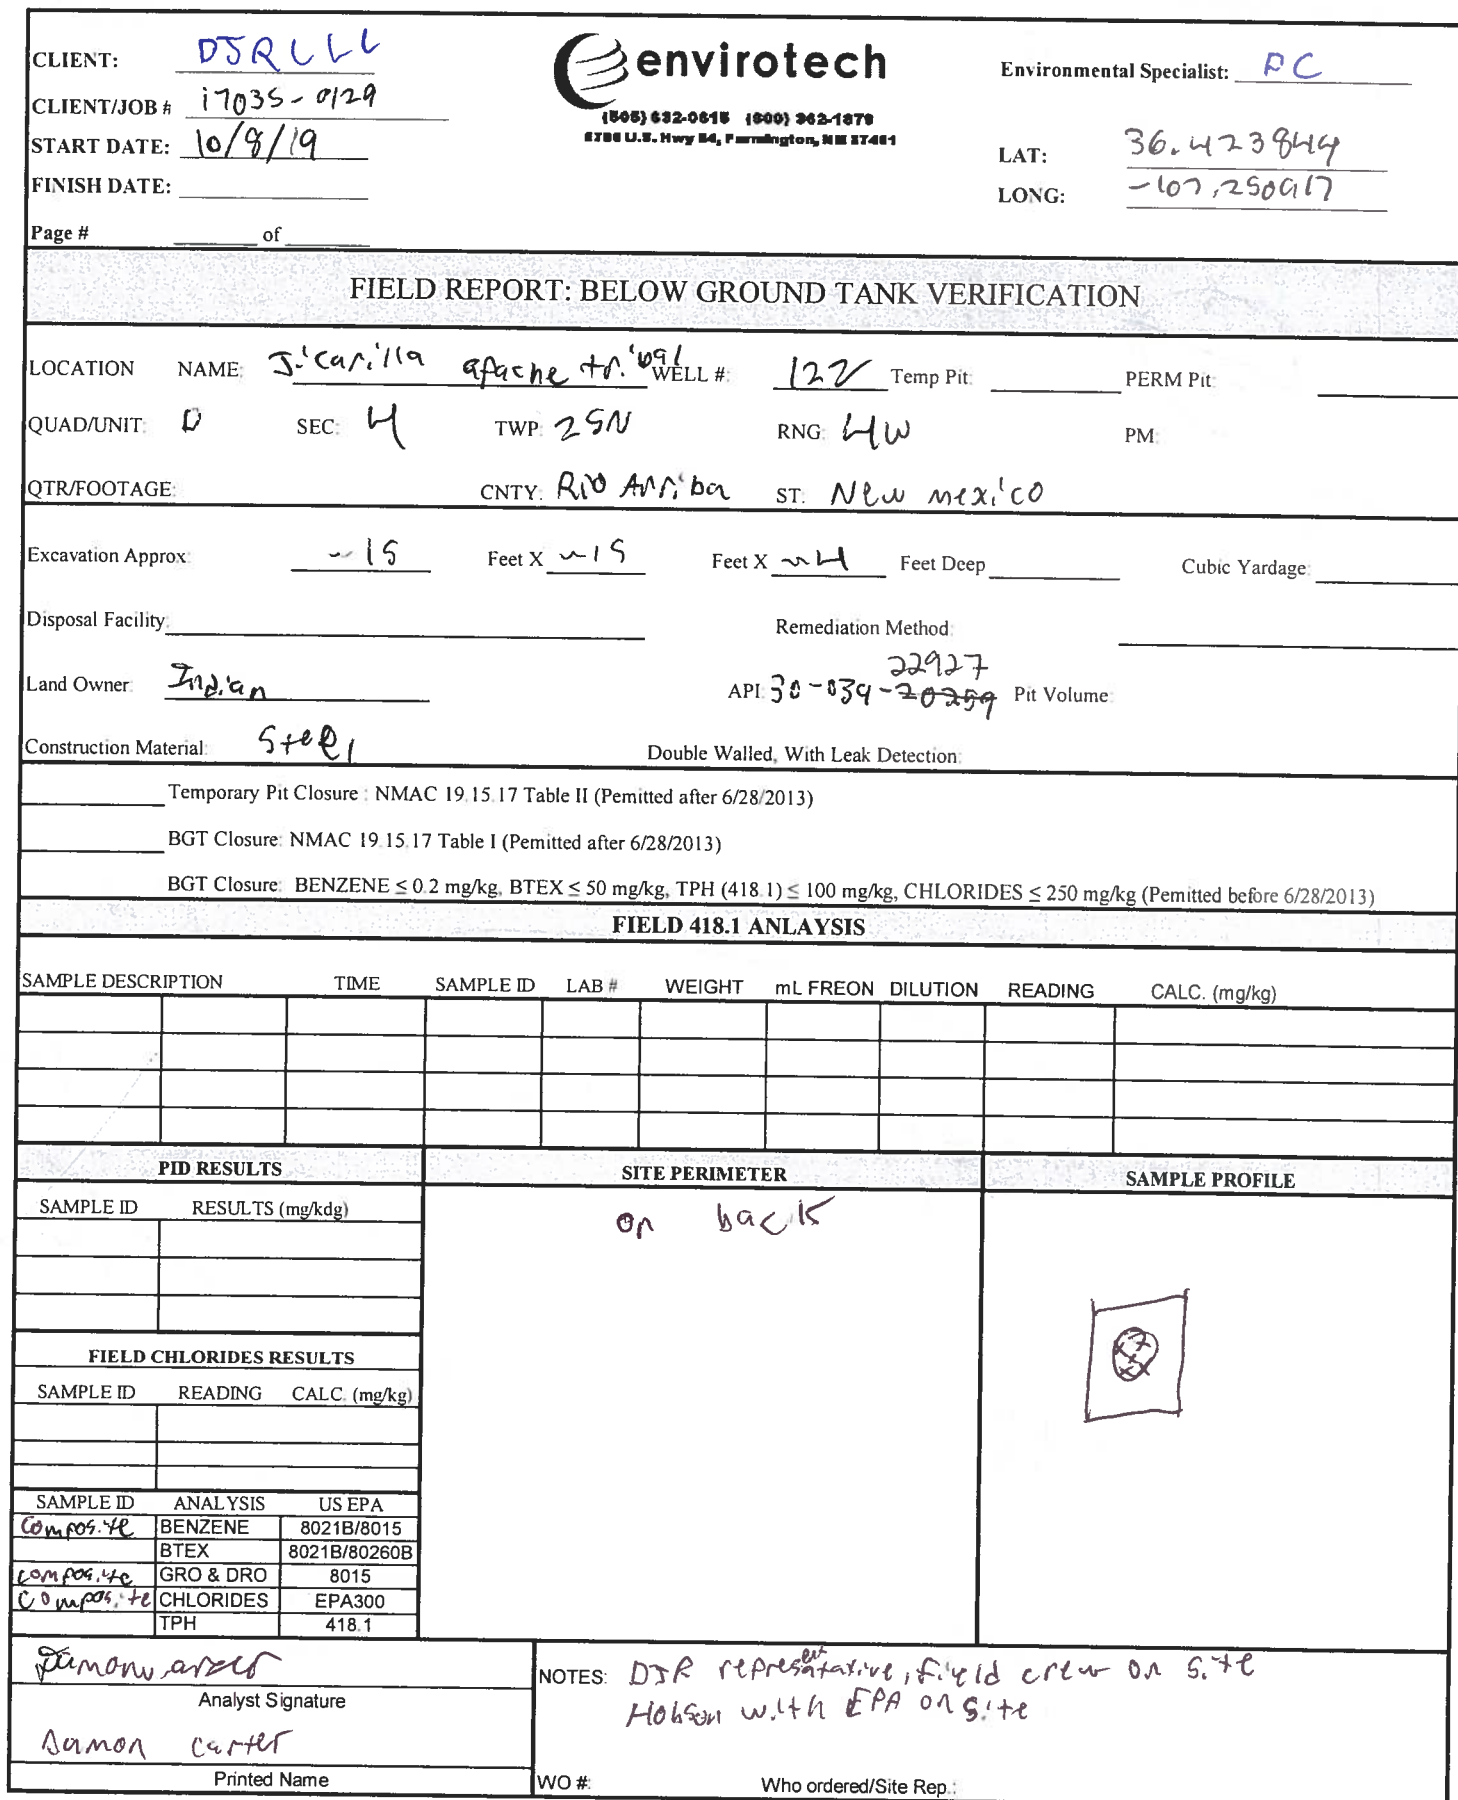 CLIENT: DJR LLC
envirotech
Environmental Specialist: DC
CLIENT/JOB # 17035-0129
(505) 632-0615 (800) 362-1879
5796 U.S. Hwy 64, Farmington, NM 87401
START DATE: 10/8/19
LAT: 36.423844
FINISH DATE:
LONG: -107.250917
Page # of
FIELD REPORT: BELOW GROUND TANK VERIFICATION
LOCATION NAME: Jicarilla apache tribal WELL #: 122 Temp Pit: PERM Pit:
QUAD/UNIT: D SEC: 4 TWP: 25N RNG: 4W PM:
QTR/FOOTAGE: CNTY: Rio Arriba ST: New mexico
Excavation Approx: ~15 Feet X ~15 Feet X ~4 Feet Deep Cubic Yardage:
Disposal Facility: Remediation Method:
22927
Land Owner: Indian API: 30-039-20259 Pit Volume:
Construction Material: Steel Double Walled, With Leak Detection:
Temporary Pit Closure : NMAC 19.15.17 Table II (Pemitted after 6/28/2013)
BGT Closure: NMAC 19.15.17 Table I (Pemitted after 6/28/2013)
BGT Closure: BENZENE ≤ 0.2 mg/kg, BTEX ≤ 50 mg/kg, TPH (418.1) ≤ 100 mg/kg, CHLORIDES ≤ 250 mg/kg (Pemitted before 6/28/2013)
FIELD 418.1 ANLAYSIS
SAMPLE DESCRIPTION TIME SAMPLE ID LAB # WEIGHT mL FREON DILUTION READING CALC. (mg/kg)
PID RESULTS
SAMPLE ID RESULTS (mg/kdg)
SITE PERIMETER
on back
SAMPLE PROFILE
FIELD CHLORIDES RESULTS
SAMPLE ID READING CALC. (mg/kg)
SAMPLE ID ANALYSIS US EPA
Composite BENZENE 8021B/8015
BTEX 8021B/80260B
composite GRO & DRO 8015
Composite CHLORIDES EPA300
TPH 418.1
Analyst Signature
Damon carter
Printed Name
NOTES: DJR representative, field crew on site
Hobson with EPA on site
WO #: Who ordered/Site Rep.: